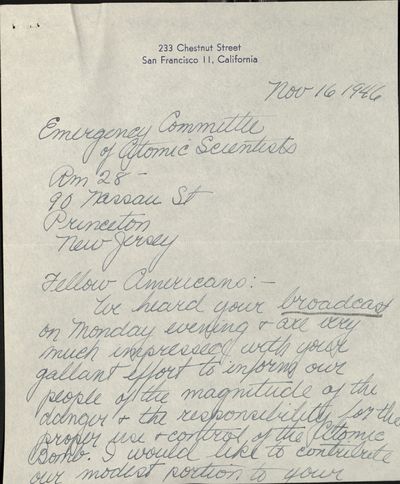 233 Chestnut Street
San Francisco 11, California
Nov 16 1946
Emergency Committee
of Atomic Scientists
Rm 28 -
90 Nassau St
Princeton
New Jersey
Fellow Americans:-
We heard your broadcast
on Monday evening + are very
much impressed with your
gallant effort to inform our
people of the magnitude of the
danger + the responsibility for the
proper use + control of the Atomic
Bomb. I would like to contribute
our modest portion to your